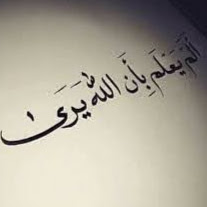 ألم يعلم بأن الله يرى